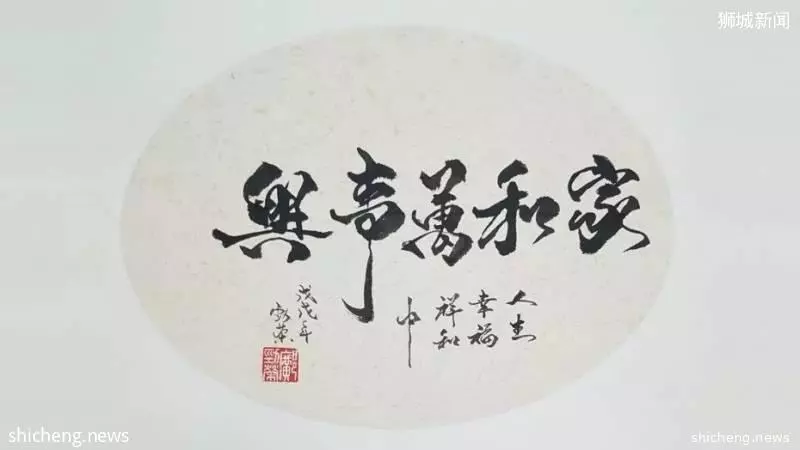 狮城新闻
家和萬事興
人生
幸福
祥和
中
戊戌年
shicheng.news
shicheng.news